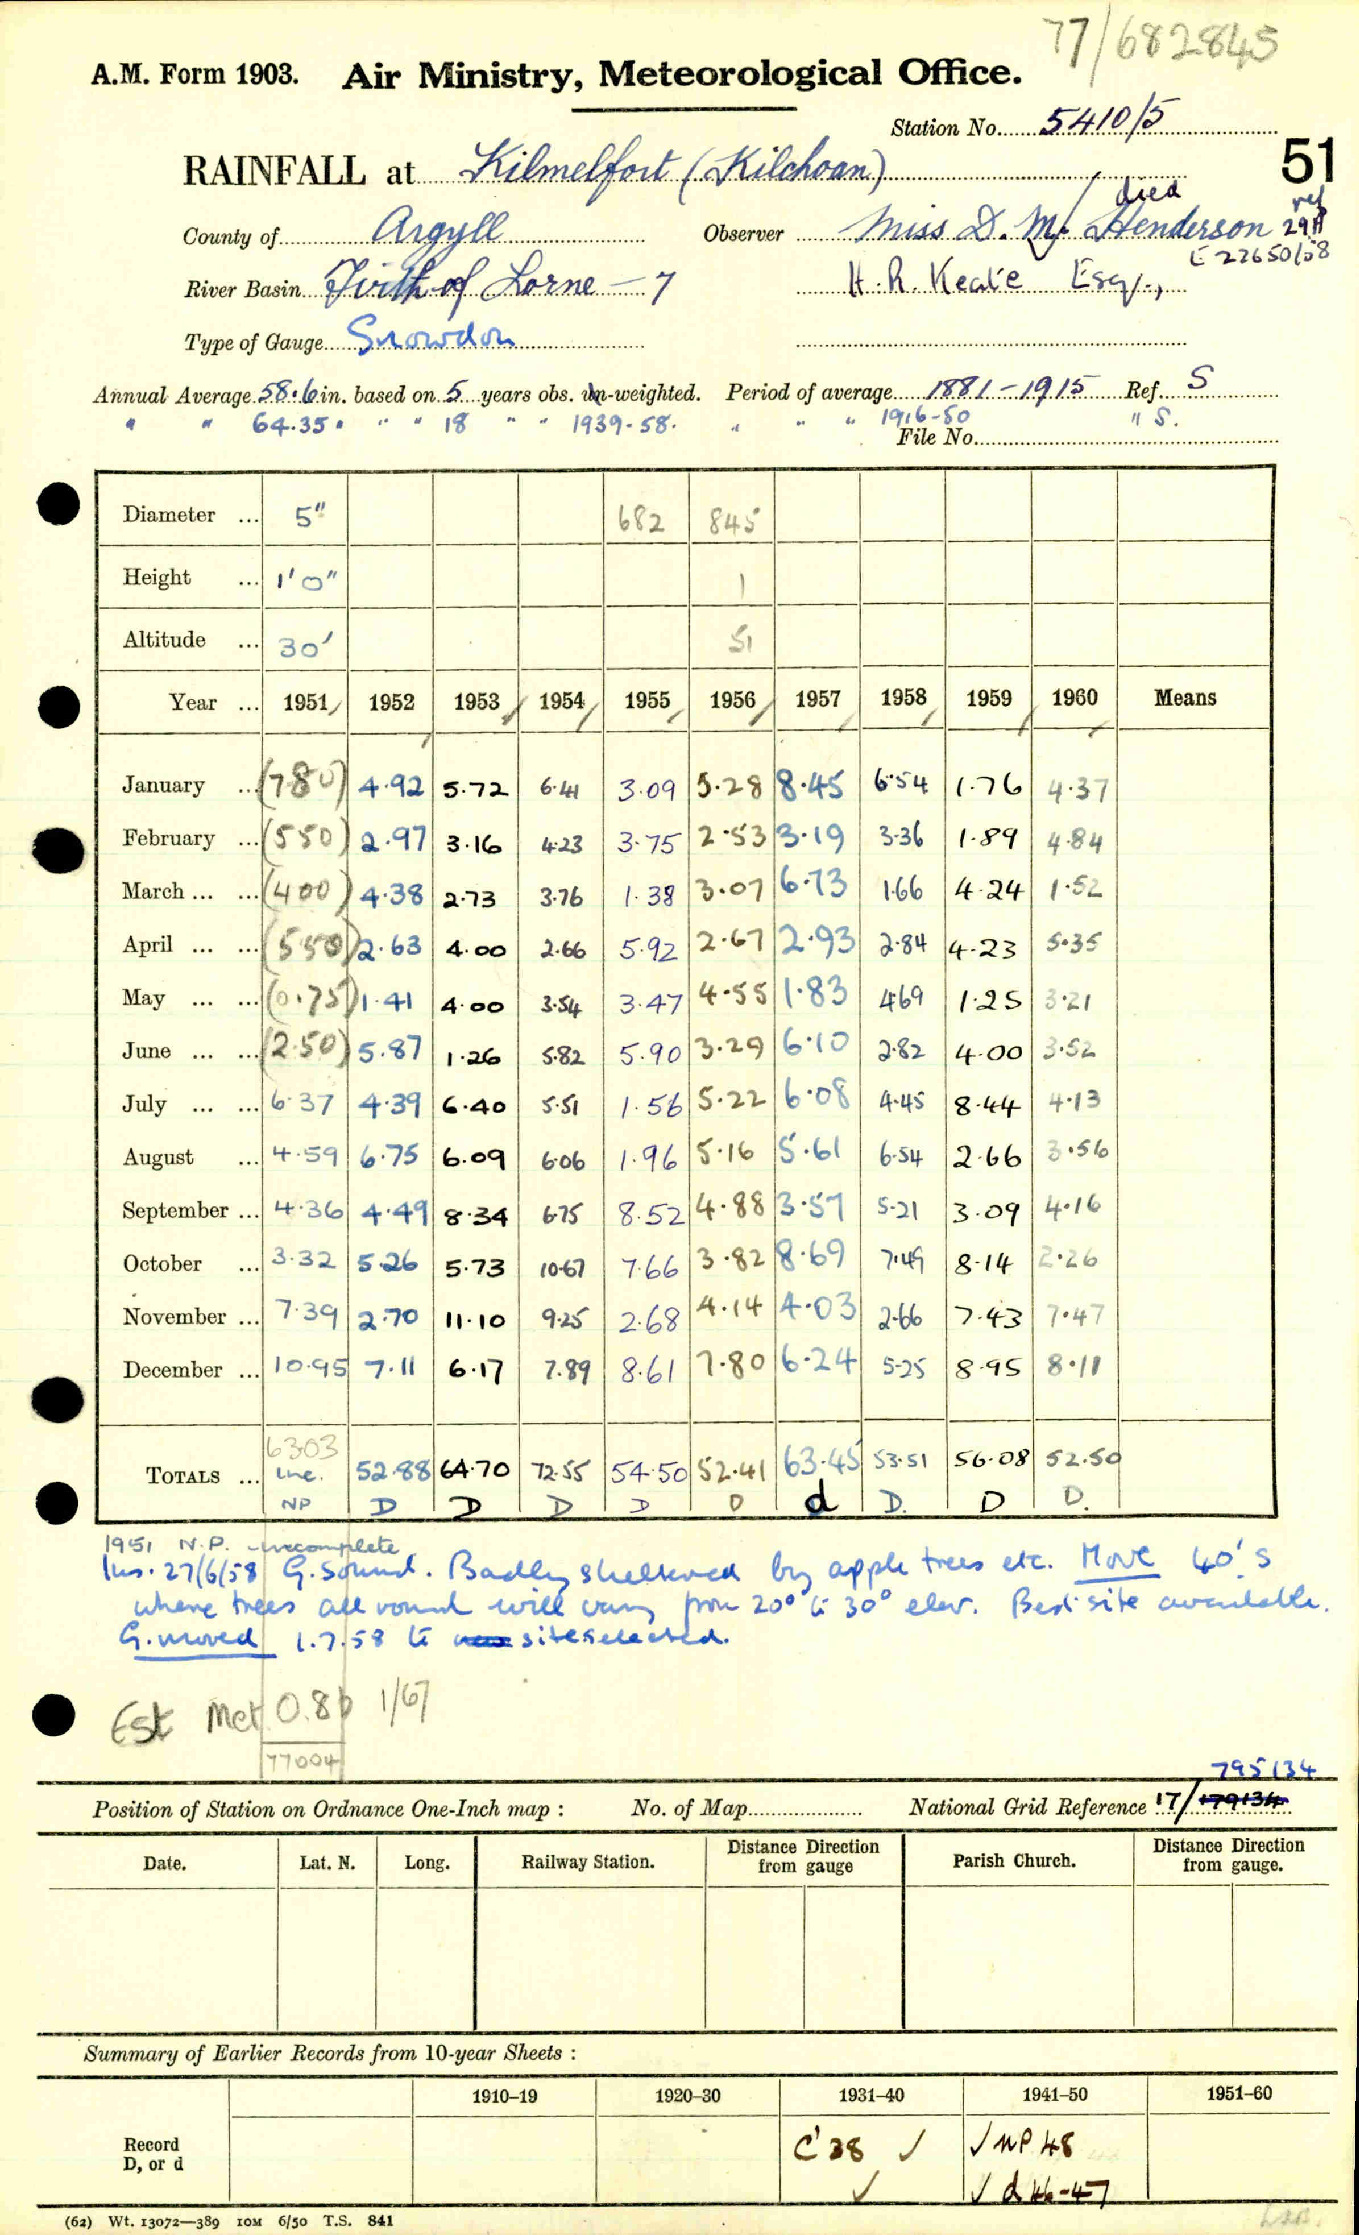 77/682845
A.M. Form 1903. Air Ministry, Meteorological Office.
Station No. 5410/5
51
RAINFALL at Kilmelfort (Kilchoan)
died
ref
County of Argyll Observer Miss D. M. Henderson 29A
E 22650/58
River Basin Firth of Lorne - 7 H. R. Keate Esq.,
Type of Gauge Snowdon
Annual Average 58.6 in. based on 5 years obs. un-weighted. Period of average 1881-1915 Ref. S
" " 64.35 " " " 18 " " 1939-58. " " " 1916-50 " S.
File No.
Diameter ... 5" 682 845
Height ... 1'0" 1
Altitude ... 30' 51
Year ... 1951 1952 1953 1954 1955 1956 1957 1958 1959 1960 Means
January ... (780) 4.92 5.72 6.41 3.09 5.28 8.45 6.54 1.76 4.37
February ... (550) 2.97 3.16 4.23 3.75 2.53 3.19 3.36 1.89 4.84
March ... ... (400) 4.38 2.73 3.76 1.38 3.07 6.73 1.66 4.24 1.52
April ... ... (550) 2.63 4.00 2.66 5.92 2.67 2.93 2.84 4.23 5.35
May ... ... (0.75) 1.41 4.00 3.54 3.47 4.55 1.83 4.69 1.25 3.21
June ... ... (2.50) 5.87 1.26 5.82 5.90 3.29 6.10 2.82 4.00 3.52
July ... ... 6.37 4.39 6.40 5.51 1.56 5.22 6.08 4.45 8.44 4.13
August ... 4.59 6.75 6.09 6.06 1.96 5.16 5.61 6.54 2.66 3.56
September ... 4.36 4.49 8.34 6.75 8.52 4.88 3.57 5.21 3.09 4.16
October ... 3.32 5.26 5.73 10.67 7.66 3.82 8.69 7.49 8.14 2.26
November ... 7.39 2.70 11.10 9.25 2.68 4.14 4.03 2.66 7.43 7.47
December ... 10.95 7.11 6.17 7.89 8.61 7.80 6.24 5.25 8.95 8.11
6303
TOTALS ... Inc. 52.88 64.70 72.55 54.50 52.41 63.45 53.51 56.08 52.50
NP D D D D D d D. D D.
1951 N.P. - incomplete
Ins. 27/6/58 G. sound. Badly sheltered by apple trees etc. Move 40's
where trees all round will vary from 20° to 30° elev. Best site available.
G. moved 1.7.58 to new site selected.
Est Met 0.86 1/67
77004
795134
Position of Station on Ordnance One-Inch map : No. of Map National Grid Reference 17/179134
Date. Lat. N. Long. Railway Station. Distance Direction from gauge Parish Church. Distance Direction from gauge.
Summary of Earlier Records from 10-year Sheets :
1910–19 1920–30 1931–40 1941–50 1951–60
Record C'38 ✓ ✓ NP 48
D, or d ✓ ✓ d 46-47
(62) Wt. 13072—389 10M 6/50 T.S. 841